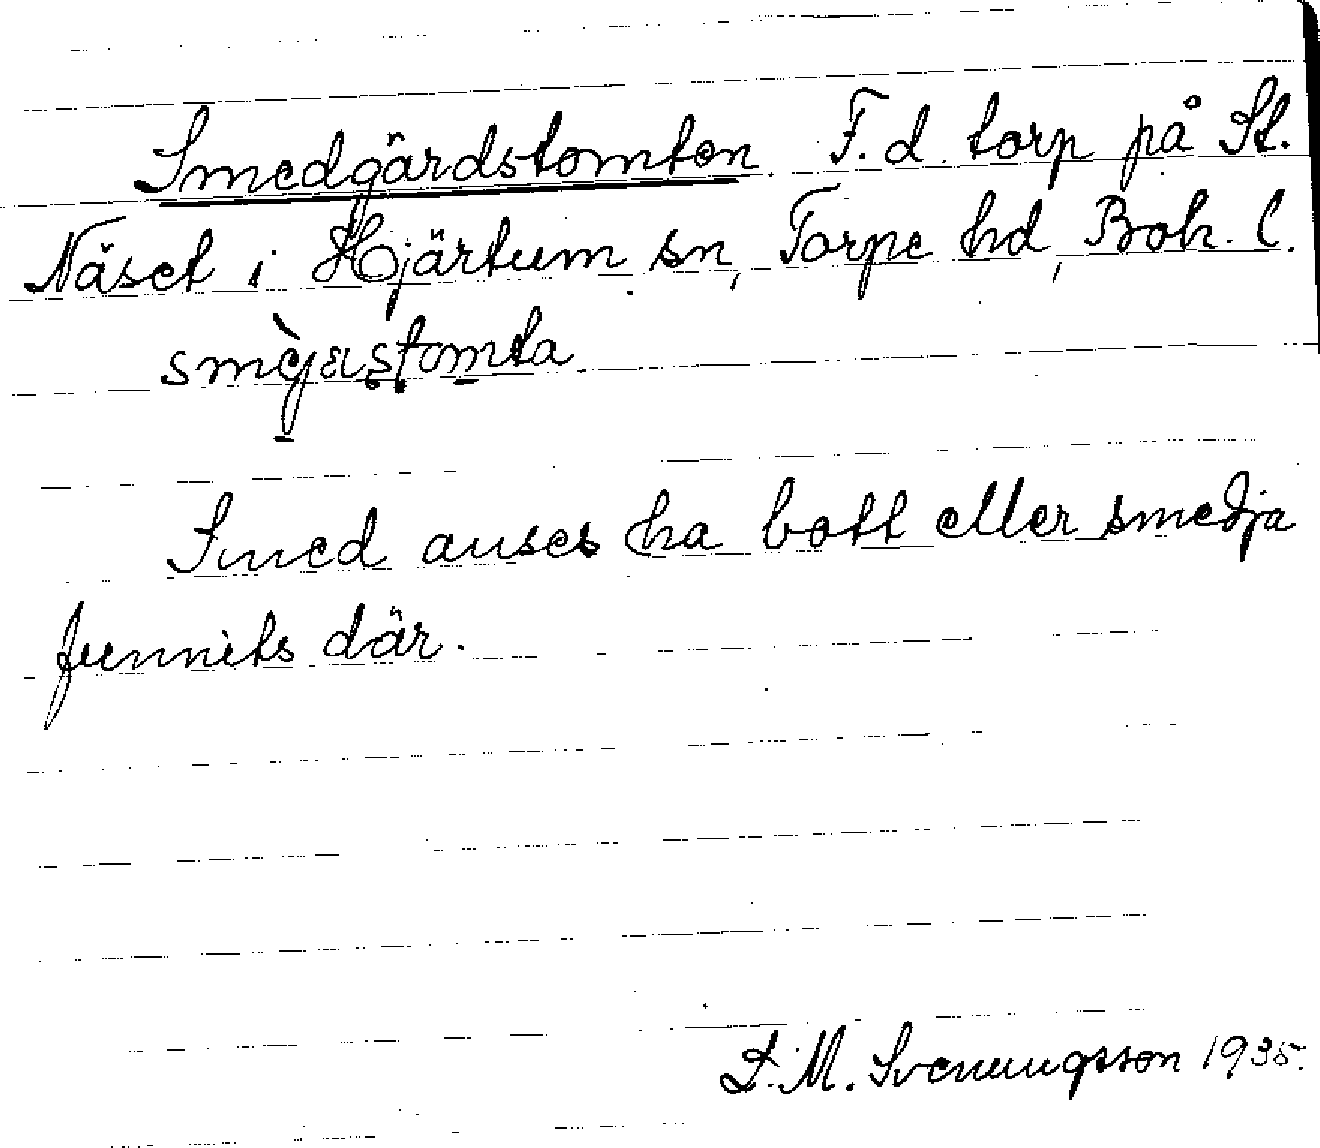 Smedgårdstomten. F.d. torp på St.
Näset i Hjärtum sn, Torpe hd, Boh. l.
Smed anses ha bott eller smedja
funnits där.
S. M. Svenungsson 1935.